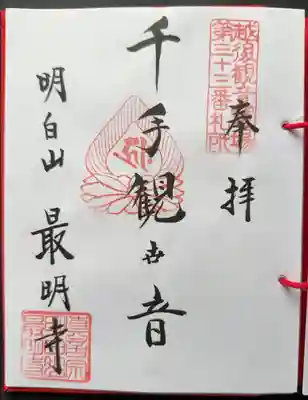 越後観音霊場
第三十三番札所
奉拝
千手観世音
明白山 最明寺